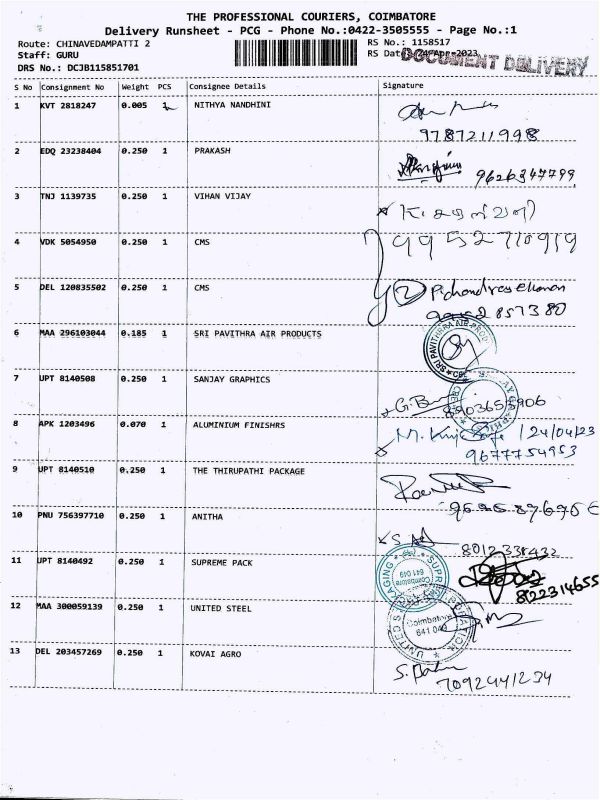 THE PROFESSIONAL COURIERS, COIMBATORE
Delivery Runsheet - PCG - Phone No.:0422-3505555 - Page No.:1
Route: CHINAVEDAMPATTI 2
RS No.: 1158517
Staff: GURU
RS Date: 24-Apr-2023
DOCUMENT DELIVERY
DRS No.: DCJB115851701
S No Consignment No Weight PCS Consignee Details Signature
1 KVT 2818247 0.005 1 NITHYA NANDHINI
9787211998
2 EDQ 23238404 0.250 1 PRAKASH
9626347799
3 TNJ 1139735 0.250 1 VIHAN VIJAY
4 VDK 5054950 0.250 1 CMS
9952710919
5 DEL 120835502 0.250 1 CMS
2 P.chandrasekaran
6 MAA 296103044 0.185 1 SRI PAVITHRA AIR PRODUCTS
SRI PAVITHRA AIR PRODUCTS
7 UPT 8140508 0.250 1 SANJAY GRAPHICS
8903653906
8 APK 1203496 0.070 1 ALUMINIUM FINISHRS
24/04/23
9677754953
9 UPT 8140510 0.250 1 THE THIRUPATHI PACKAGE
10 PNU 756397710 0.250 1 ANITHA
8012338432
11 UPT 8140492 0.250 1 SUPREME PACK
Coimbatore
641 049
8122314655
12 MAA 300059139 0.250 1 UNITED STEEL
Coimbatore
641 049
13 DEL 203457269 0.250 1 KOVAI AGRO
7092441234